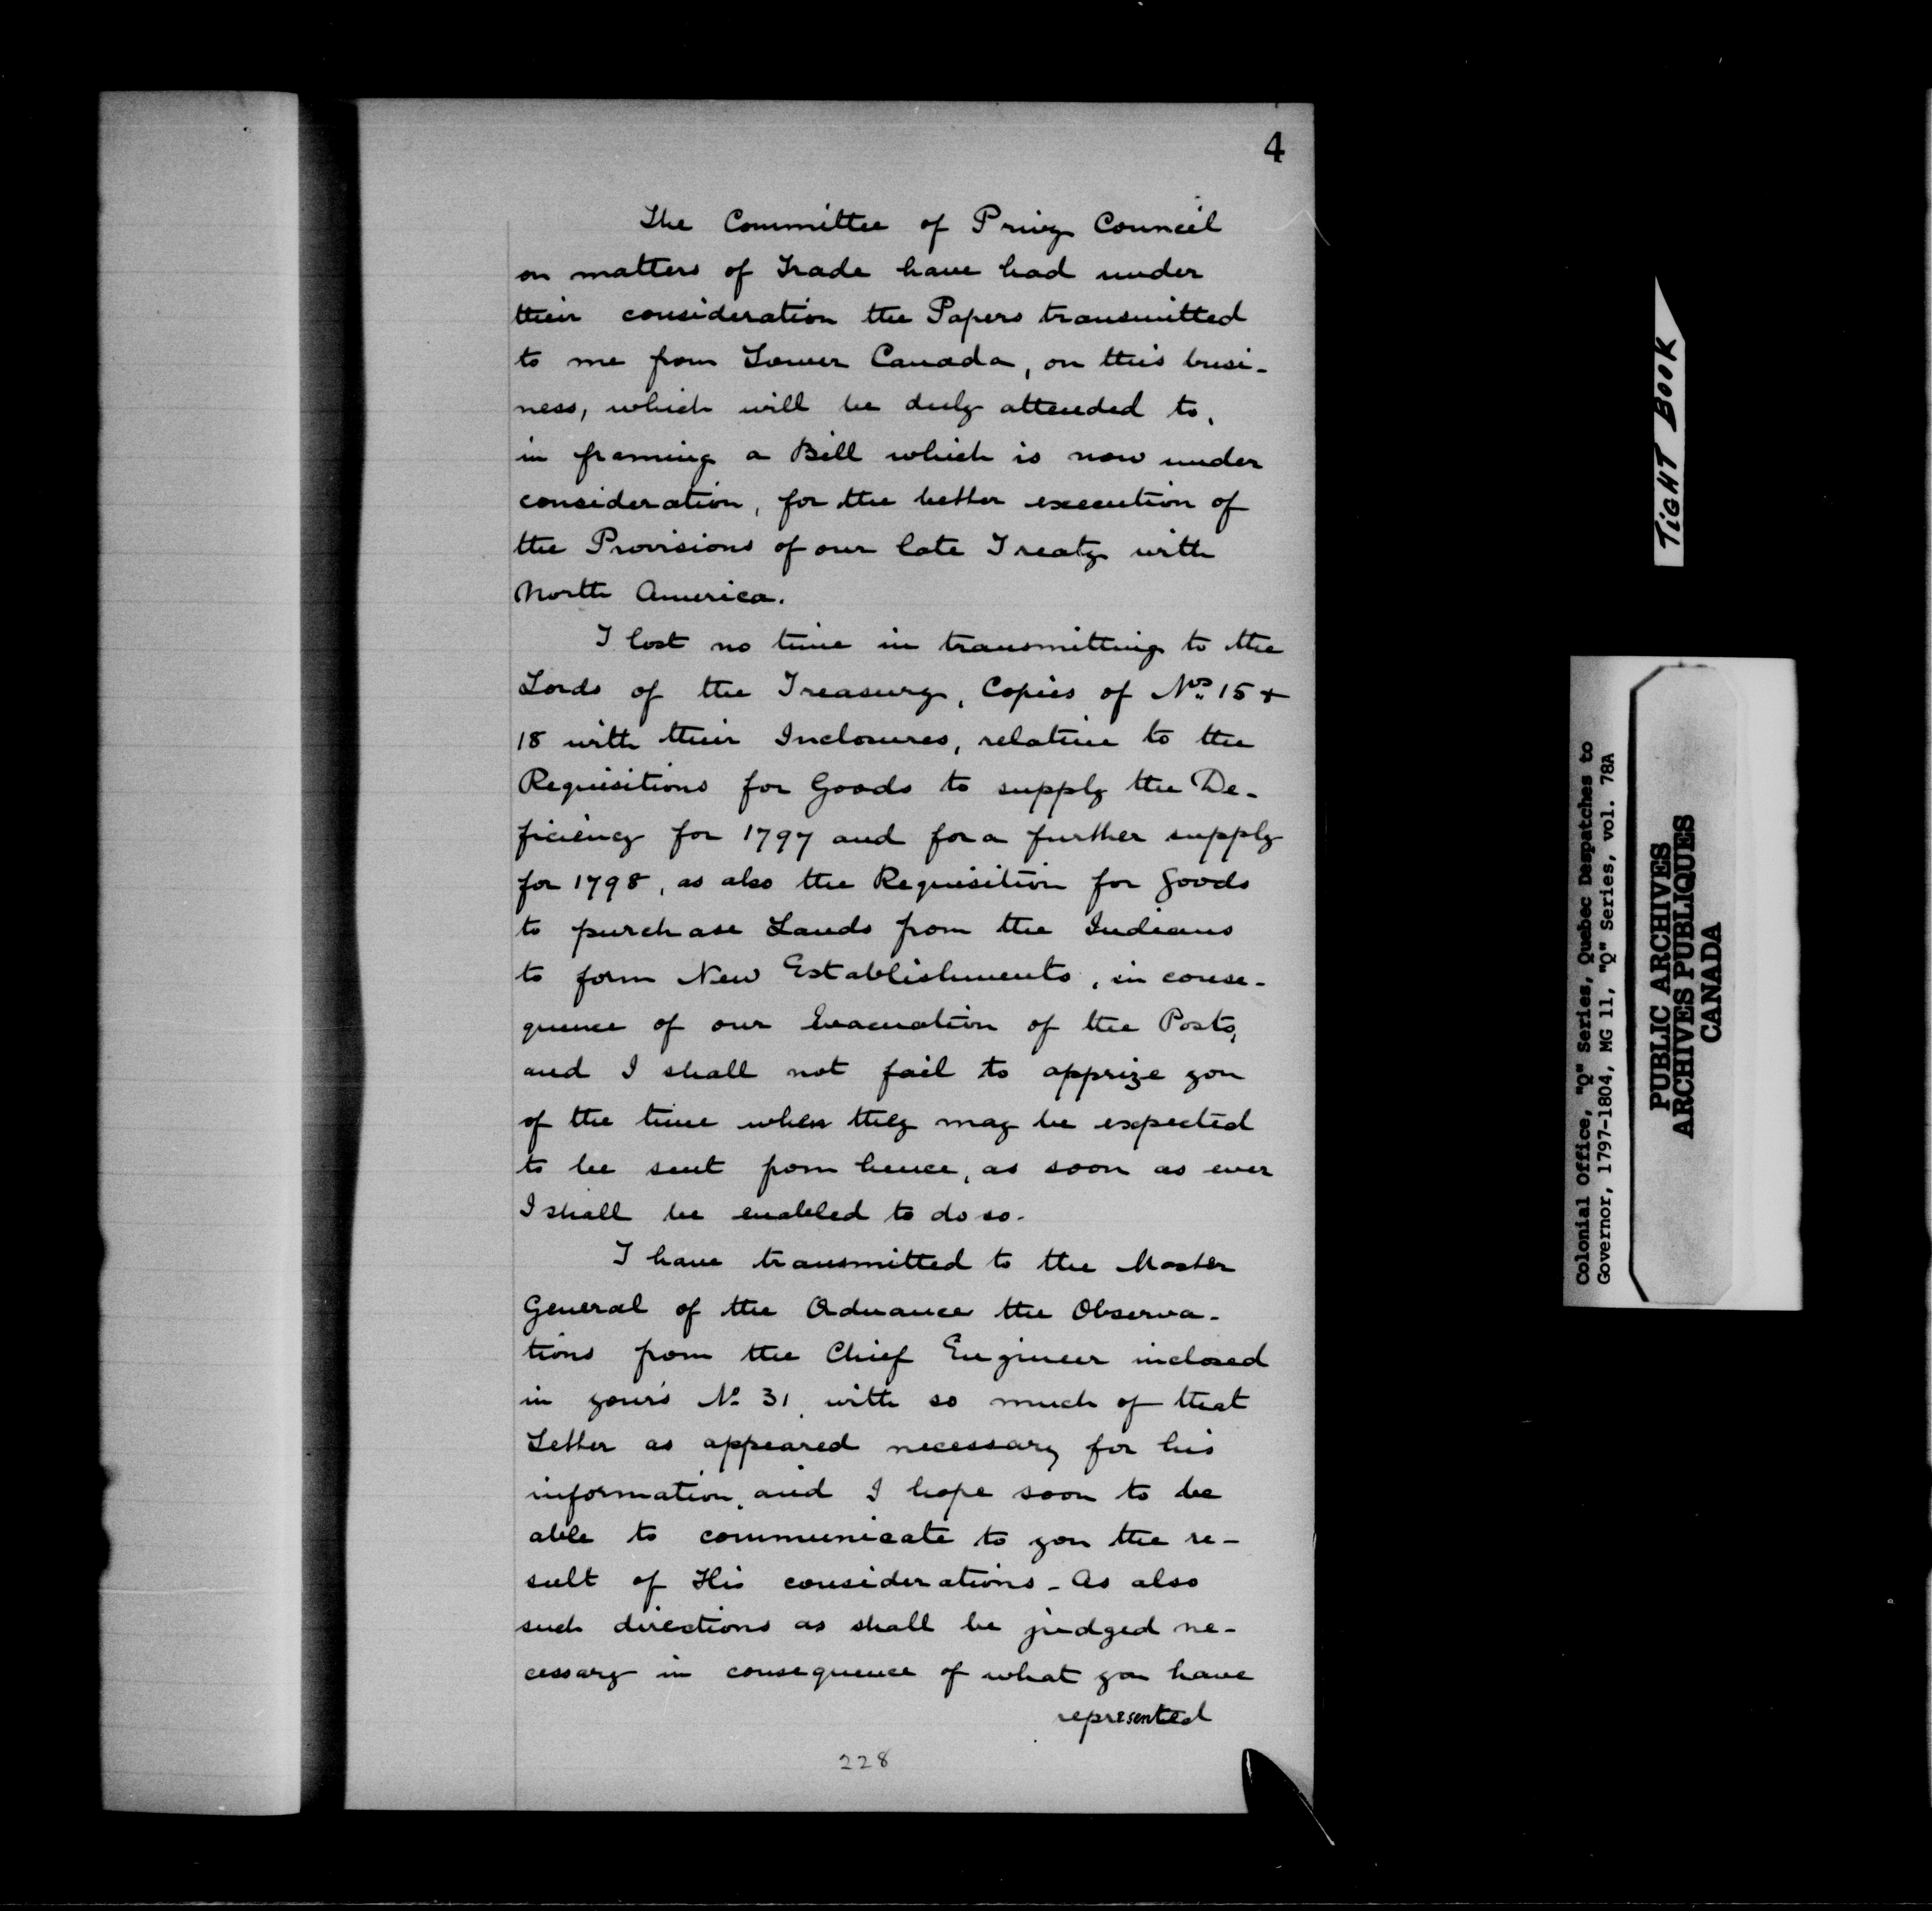 4
The Committee of Privy Council
on matters of Trade have had under
their consideration the Papers transmitted
to me from Lower Canada, on this busi-
ness, which will be duly attended to,
in framing a Bill which is now under
consideration, for the better execution of
the Provisions of our late Treaty with
North America.
I lost no time in transmitting to the
Lords of the Treasury, Copies of Nos. 15 &
18 with their Inclosures, relative to the
Requisitions for Goods to supply the De-
ficiency for 1797 and for a further supply
for 1798, as also the Requisition for Goods
to purchase Lands from the Indians
to form New Establishments, in conse-
quence of our Evacuation of the Posts,
and I shall not fail to apprize you
of the time when they may be expected
to be sent from hence, as soon as ever
I shall be enabled to do so.
I have transmitted to the Master
General of the Ordnance the Observa-
tions from the Chief Engineer inclosed
in your's No. 31, with so much of that
Letter as appeared necessary for his
information, and I hope soon to be
able to communicate to you the re-
sult of His considerations - As also
such directions as shall be judged ne-
cessary in consequence of what you have
represented
228
TIGHT BOOK
Colonial Office, "Q" Series, Quebec Despatches to
Governor, 1797-1804, MG 11, "Q" Series, vol. 78A
PUBLIC ARCHIVES
ARCHIVES PUBLIQUES
CANADA